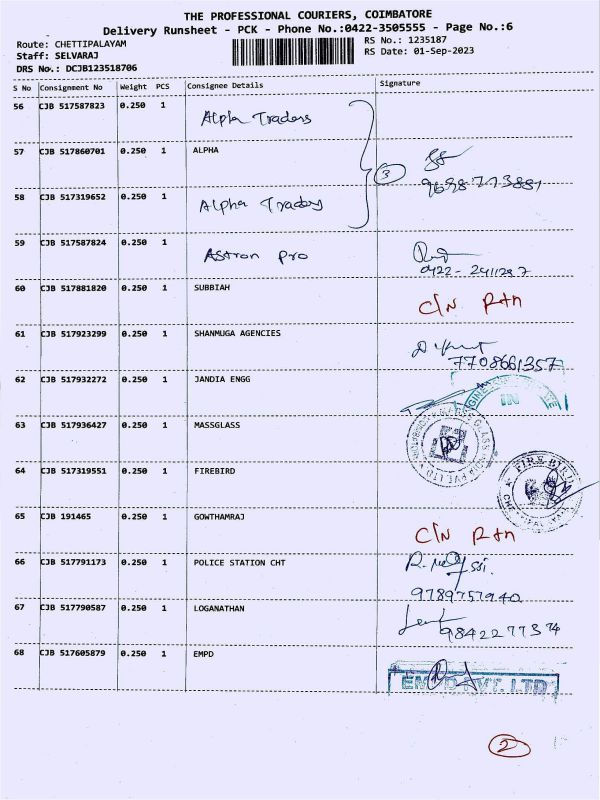 THE PROFESSIONAL COURIERS, COIMBATORE
Delivery Runsheet - PCK - Phone No.:0422-3505555 - Page No.:6
Route: CHETTIPALAYAM
RS No.: 1235187
Staff: SELVARAJ
RS Date: 01-Sep-2023
DRS No.: DCJB123518706
S No Consignment No Weight PCS Consignee Details Signature
56 CJB 517587823 0.250 1 Alpha Traders
57 CJB 517860701 0.250 1 ALPHA
3
9698773881
58 CJB 517319652 0.250 1 Alpha Traders
59 CJB 517587824 0.250 1 Astron Pro
0422-2411287
60 CJB 517881820 0.250 1 SUBBIAH C/N RTN
61 CJB 517923299 0.250 1 SHANMUGA AGENCIES
7708661357
62 CJB 517932272 0.250 1 JANDIA ENGG
IN
63 CJB 517936427 0.250 1 MASSGLASS
64 CJB 517319551 0.250 1 FIREBIRD
FIRE BIRD
65 CJB 191465 0.250 1 GOWTHAMRAJ C/N RTN
66 CJB 517791173 0.250 1 POLICE STATION CHT
9789757940
67 CJB 517790587 0.250 1 LOGANATHAN
9842277374
68 CJB 517605879 0.250 1 EMPD
EMPD PVT. LTD
2